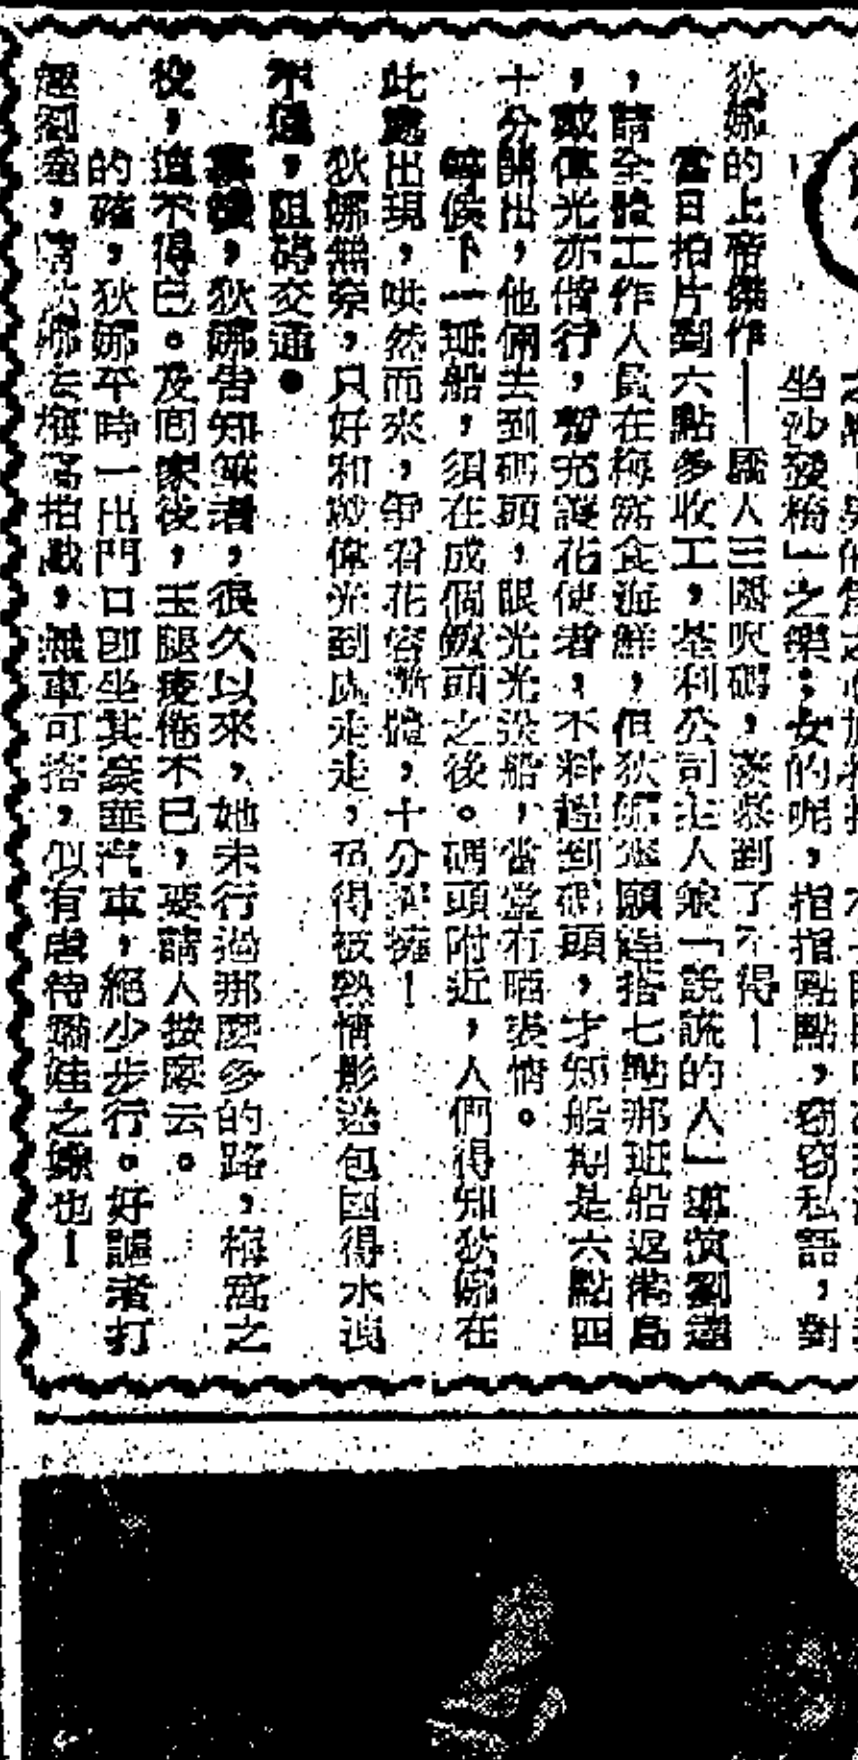 坐沙發椅」之樂；女的呢，指指點點，竊竊私語，對
狄娜的上帝傑作——驕人三圍呎碼，羨慕到了不得！
當日拍片到六點多收工，荃利公司主人娘「說謊的人」導演劉達
，請全體工作人員在梅窩食海鮮，但狄娜願趕搭七點那班船返港島
，戴偉光亦偕行，暫充護花使者，不料趕到碼頭，才知船期是六點四
十分開出，他倆去到碼頭，眼光光沒船，當堂冇晒表情。
等候下一班船，須在成個鐘頭之後。碼頭附近，人們得知狄娜在
此處出現，哄然而來，爭看花容，十分擠擁！
狄娜無奈，只好和戴偉光到處走走，免得被熱情影迷包圍得水洩
不通，阻碍交通●
事後，狄娜告知筆者，很久以來，她未行過那麼多的路，梅窩之
役，迫不得已。及囘家後，玉腿疲倦不已，要請人按摩云。
的確，狄娜平時一出門口即坐其豪華汽車，絕少步行。好謳者打
趣劉達，請狄娜去梅窩拍戲，無車可搭，似有虐待嬌娃之嫌也！